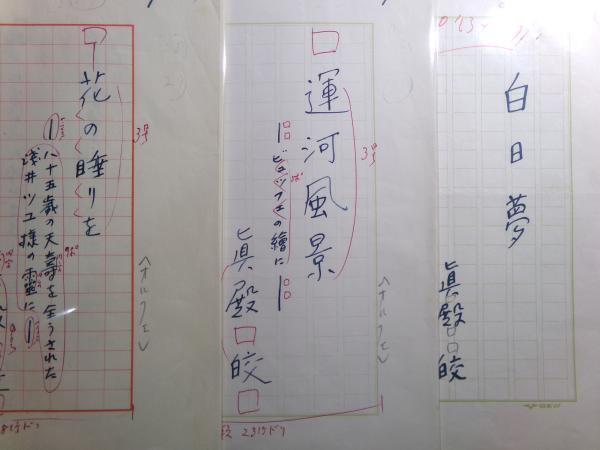 白日夢
眞殿皎
3号
運河風景
―ビュッフェの繪に―
眞殿皎
〈オルフェ〉
3号
花の睡りを
―八十五歳の天壽を全うされた
淺井ツユ様の靈に―
〈オルフェ〉